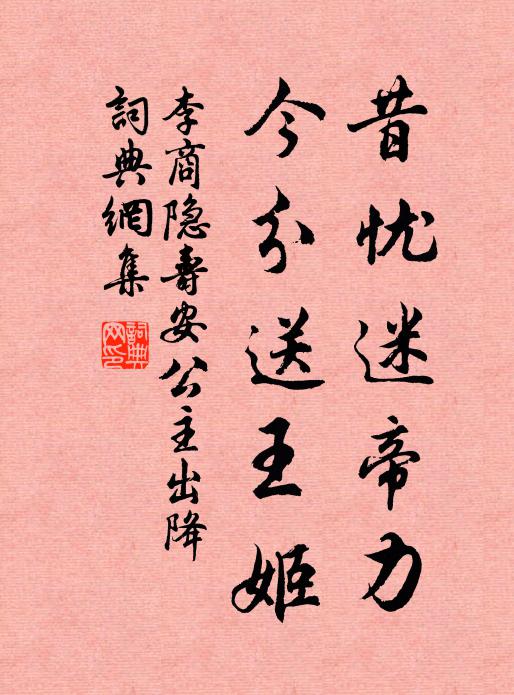 昔忧迷帝力
今分送王姬
李商隐壽安公主出降
詞典網集
詞典网印